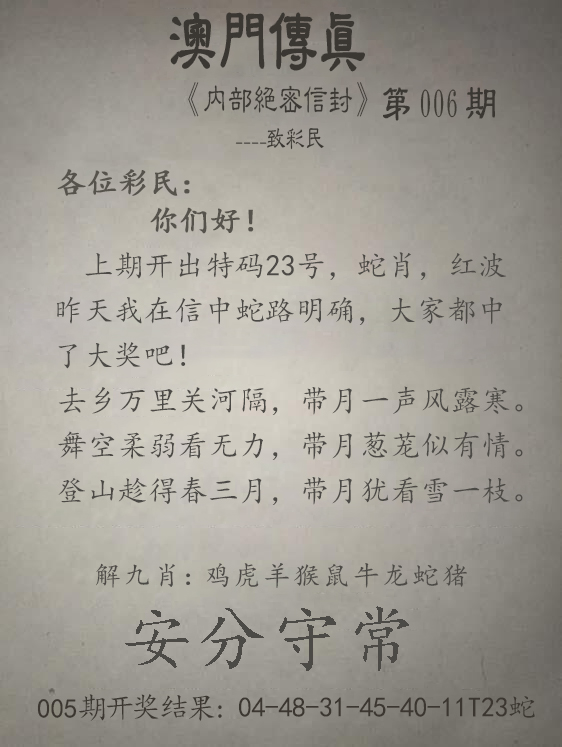 澳門傳眞
《内部絕密信封》第006期
----致彩民
各位彩民：
你们好！
上期开出特码23号，蛇肖，红波
昨天我在信中蛇路明确，大家都中
了大奖吧！
去乡万里关河隔，带月一声风露寒。
舞空柔弱看无力，带月葱茏似有情。
登山趁得春三月，带月犹看雪一枝。
解九肖：鸡虎羊猴鼠牛龙蛇猪
安分守常
005期开奖结果：04-48-31-45-40-11T23蛇